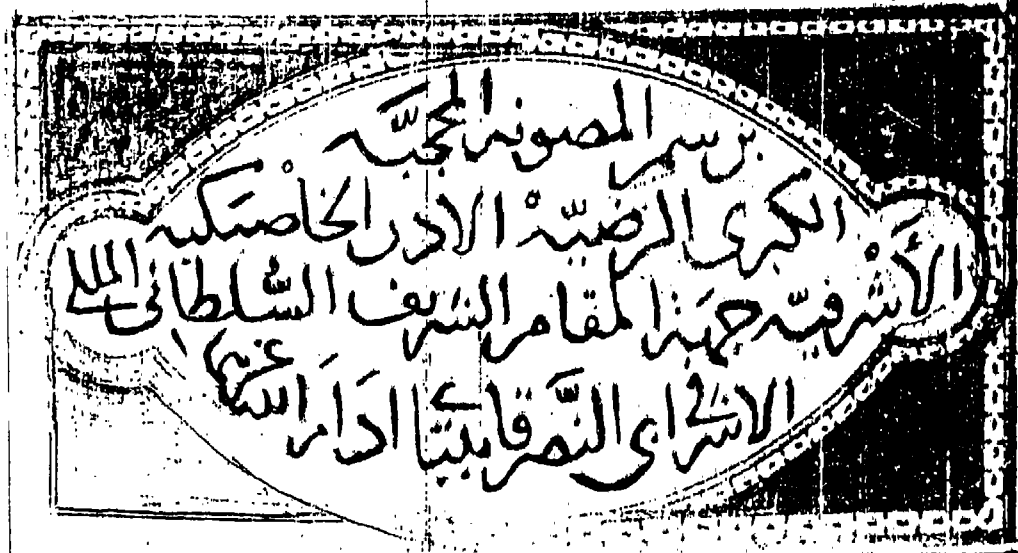 برسم المصونه المحجبّه
الكبرى الرضيّة الادر الخاصكيه
الأشرفيّه جهة المقام الشريف السُّلطانى الملكى
الاشرفى ابى النَّصر قايتباى ادَامَ الله عزهما